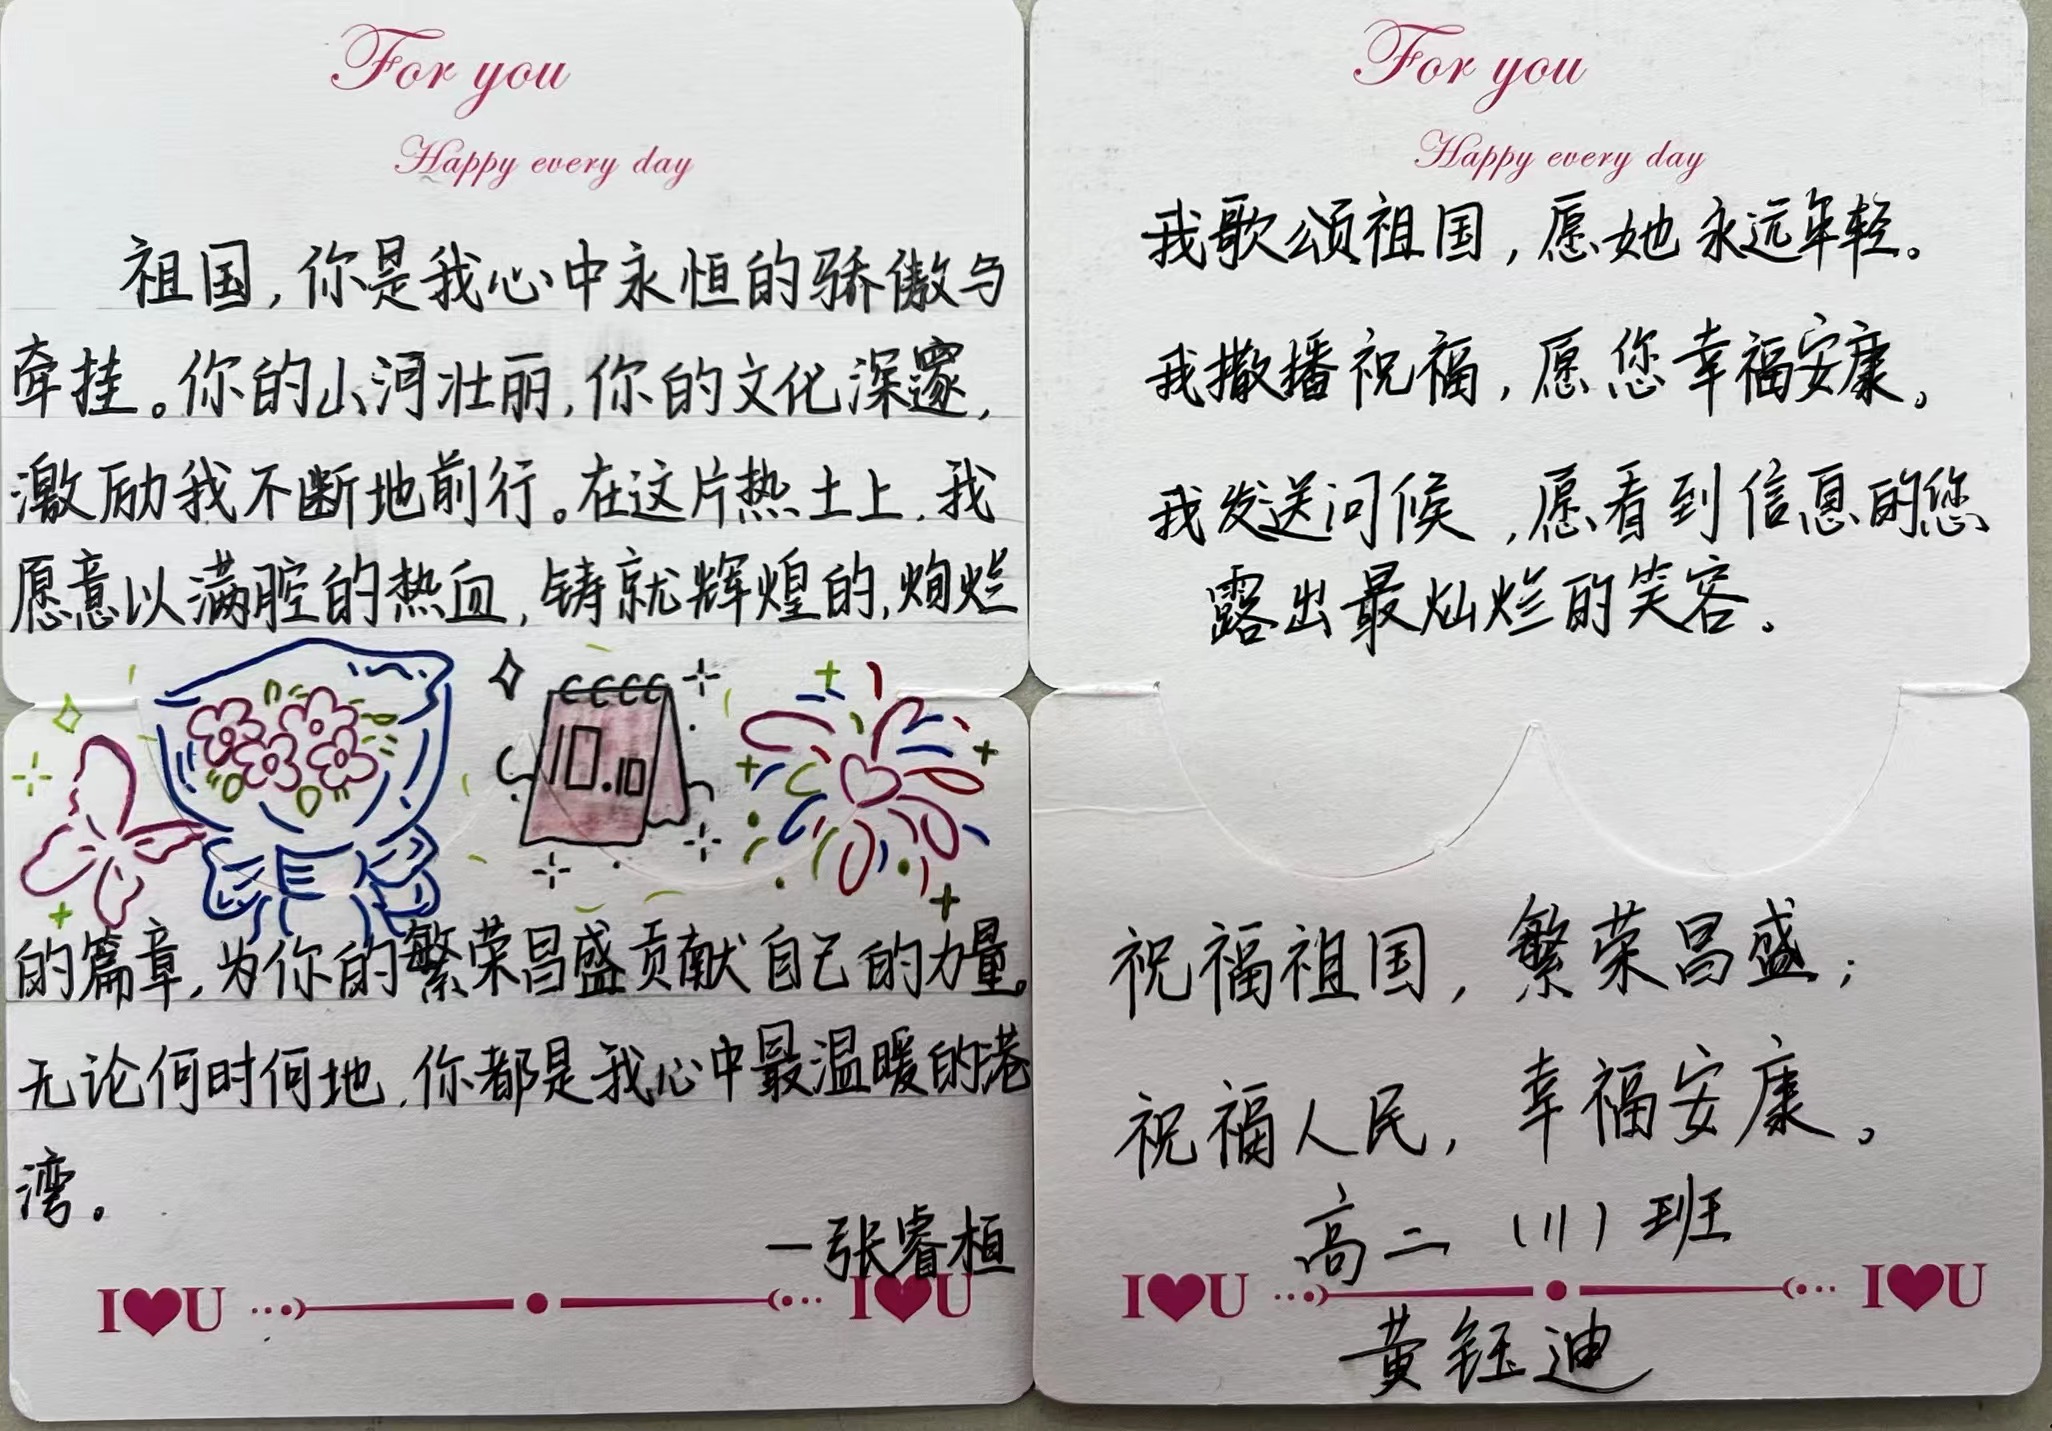 For you
Happy every day
祖国,你是我心中永恒的骄傲与
牵挂。你的山河壮丽,你的文化深邃,
激励我不断地前行。在这片热土上,我
愿意以满腔的热血,铸就辉煌的,绚烂
10.10
的篇章,为你的繁荣昌盛贡献自己的力量。
无论何时何地,你都是我心中最温暖的港
湾。
—张睿桓
I♥U I♥U
For you
Happy every day
我歌颂祖国,愿她永远年轻。
我撒播祝福,愿您幸福安康。
我发送问候,愿看到信息的您
露出最灿烂的笑容。
祝福祖国,繁荣昌盛;
祝福人民,幸福安康。
高二(11)班
I♥U I♥U
黄钰迪